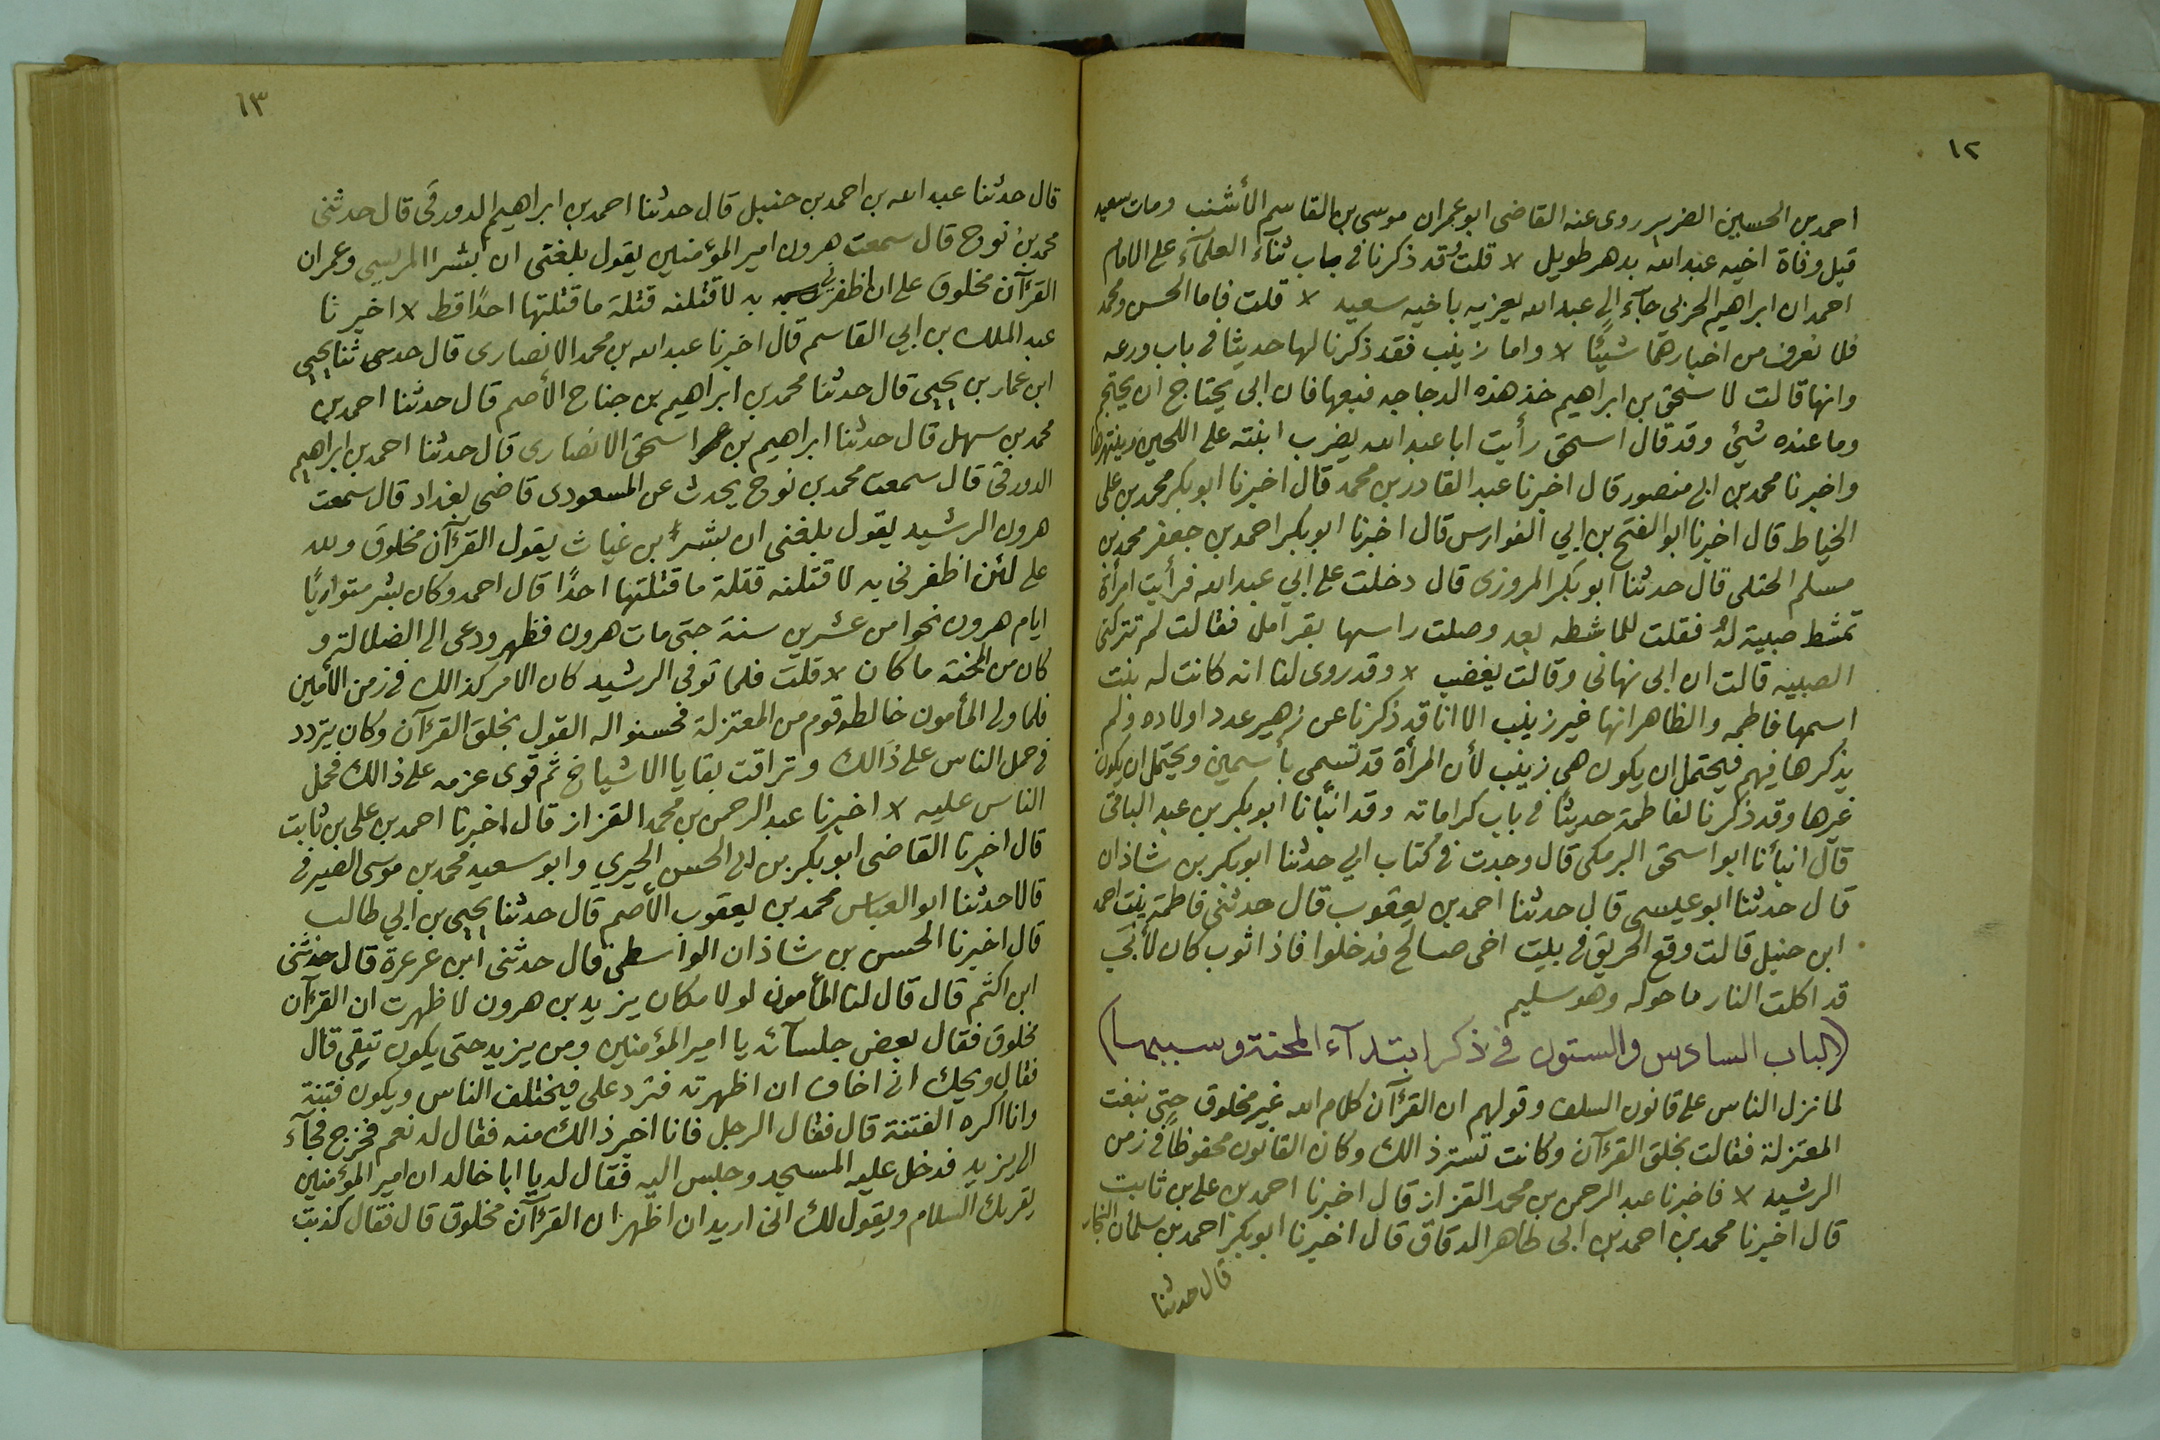 ١٢
احمد بن الحسين الضرير روى عنه القاضى ابو عمران موسى بن القاسم الأشنب ومات سعيد
قبل وفاة اخيه عبد الله بدهر طويل لا قلت قد ذكرنا فى باب ثناء العلمآء على الامام
احمد ان ابراهيم الحربى جآء الى عبد الله يعزيه باخيه سعيد لا قلت فاما الحسن ومحمد
فلا نعرف من اخبارهما شيئًا لا واما زينب فقد ذكرنا لها حديثا فى باب ورعه
وانها قالت لاسحق بن ابراهيم خذ هذه الدجاجه فبعها فان ابى يحتاج ان يحتجم
وما عنده شيئ وقد قال اسحق رأيت ابا عبد الله يضرب ابنته على اللحين وينتهرها
واخبرنا محمد بن ابى منصور قال اخبرنا عبد القادر بن محمد قال اخبرنا ابو بكر محمد بن على
الخياط قال اخبرنا ابو الفتح بن ابي الفوارس قال اخبرنا ابو بكر احمد بن جعفر محمد بن
مسلم الختلى قال حدثنا ابو بكر المروزى قال دخلت على ابي عبد الله فرأيت امرأة
تمشط صبية له فقلت للماشطه بعد وصلت راسها بقرامل فقالت لم تتركنى
الصبيه قالت ان ابى نهانى وقالت يغضب لا وقد روى لنا انه كانت له بنت
اسمها فاطمه والظاهر انها غير زينب الا انا قد ذكرنا عن زهير عدد اولاده ولم
يذكرها فيهم فيحتمل ان يكون هى زينب لأن المرأة قد تسمى بأسمين ويحتمل ان يكون
غيرها وقد ذكرنا لفاطمة حديثا فى باب كراماته وقد انبأنا ابو بكر بن عبد الباقى
قال انبأنا ابو اسحق البرمكى قال وجدت فى كتاب ابي حدثنا ابو بكر بن شاذان
قال حدثنا ابو عيسى قال حدثنا احمد بن يعقوب قال حدثنى فاطمة بنت احمد
ابن حنبل قالت وقع الحريق فى بليت اخى صالح فدخلوا فاذا ثوب كان لأبى
قد اكلت النار ما حوله وهو سليم
(الباب السادس والستون فى ذكر ابتدآء المحنة وسببها)
لما نزل الناس على قانون السلف وقولهم ان القرآن كلام الله غير مخلوق حتى نبغت
المعتزلة فقالت بخلق القرآن وكانت تستر ذالك وكان القانون محفوظا فى زمن
الرشيد لا فاخبرنا عبد الرحمن بن محمد القزاز قال اخبرنا احمد بن على بن ثابت
قال اخبرنا محمد بن احمد بن ابى طاهر الدقاق قال اخبرنا ابو بكر احمد بن سلمان النجار
قال حدثنا
١٣
قال حدثنا عبد الله بن احمد بن حنبل قال حدثنا احمد بن ابراهيم الدورقى قال حدثنى
محمد بن نوح قال سمعت هرون امير المؤمنين يقول بلغنى ان بشرا المريسي وعمران
القرآن مخلوق على ان اظفرنى به لاقتلنه قتلة ما قتلتها احدًا قط لا اخبرنا
عبد الملك بن ابي القاسم قال اخبرنا عبد الله بن محمد الانصارى قال حدسى ثنا يحيى
ابن عمار بن يحيى قال حدثنا محمد بن ابراهيم بن جناح الأصم قال حدثنا احمد بن
محمد بن سهل قال حدثنا ابراهيم بن اسحق الانصارى قال حدثنا احمد بن ابراهيم
الدورقى قال سمعت محمد بن نوح يحدث عن المسعودى قاضى بغداد قال سمعت
هرون الرشيد يقول بلغنى ان بشر بن غياث يقول القرآن مخلوق ولله
على لئن اظفرنى به لاقتلنه قتلة ما قتلتها احدًا قال احمد وكان بشر متواريًا
ايام هرون نحوا من عشرين سنة حتى مات هرون فظهر ودعى الى الضلالة و
كان من المحنة ما كان لا قلت فلما توفى الرشيد كان الامر كذالك فى زمن الأمين
فلما ولى المأمون خالطه قوم من المعتزلة فحسنوا له القول بخلق القرآن وكان يتردد
فى حمل الناس على ذالك وتراقت بقايا الاشياخ ثم قوى عزمه على ذالك فحمل
الناس عليه لا اخبرنا عبد الرحمن بن محمد القزاز قال اخبرنا احمد بن على بن ثابت
قال اخبرنا القاضى ابو بكر بن ابى الحسن الحيري وابو سعيد محمد بن موسى الصيرفى
قالا حدثنا ابو العباس محمد بن يعقوب الأصم قال حدثنا يحيى بن ابي طالب
قال اخبرنا الحسن بن شاذان الواسطى قال حدثنى ابن عرعرة قال حدثنى
ابن اكثم قال قال لنا المأمون لولا مكان يزيد بن هرون لاظهرت ان القرآن
مخلوق فقال بعض جلسآئه يا امير المؤمنين ومن يزيد حتى يكون تيقى قال
فقال ويحك انى اخاف ان اظهرته فترد على فيختلف الناس ويكون فتنة
وانا اكره الفتنة قال فقال الرجل فانا اخبر ذالك منه فقال له نعم فخرج فجآء
الى يزيد فدخل عليه المسجد وجلس اليه فقال له يا ابا خالد ان امير المؤمنين
يقربك السلام ويقول لك انى اريد ان اظهر ان القرآن مخلوق قال فقال كذبت